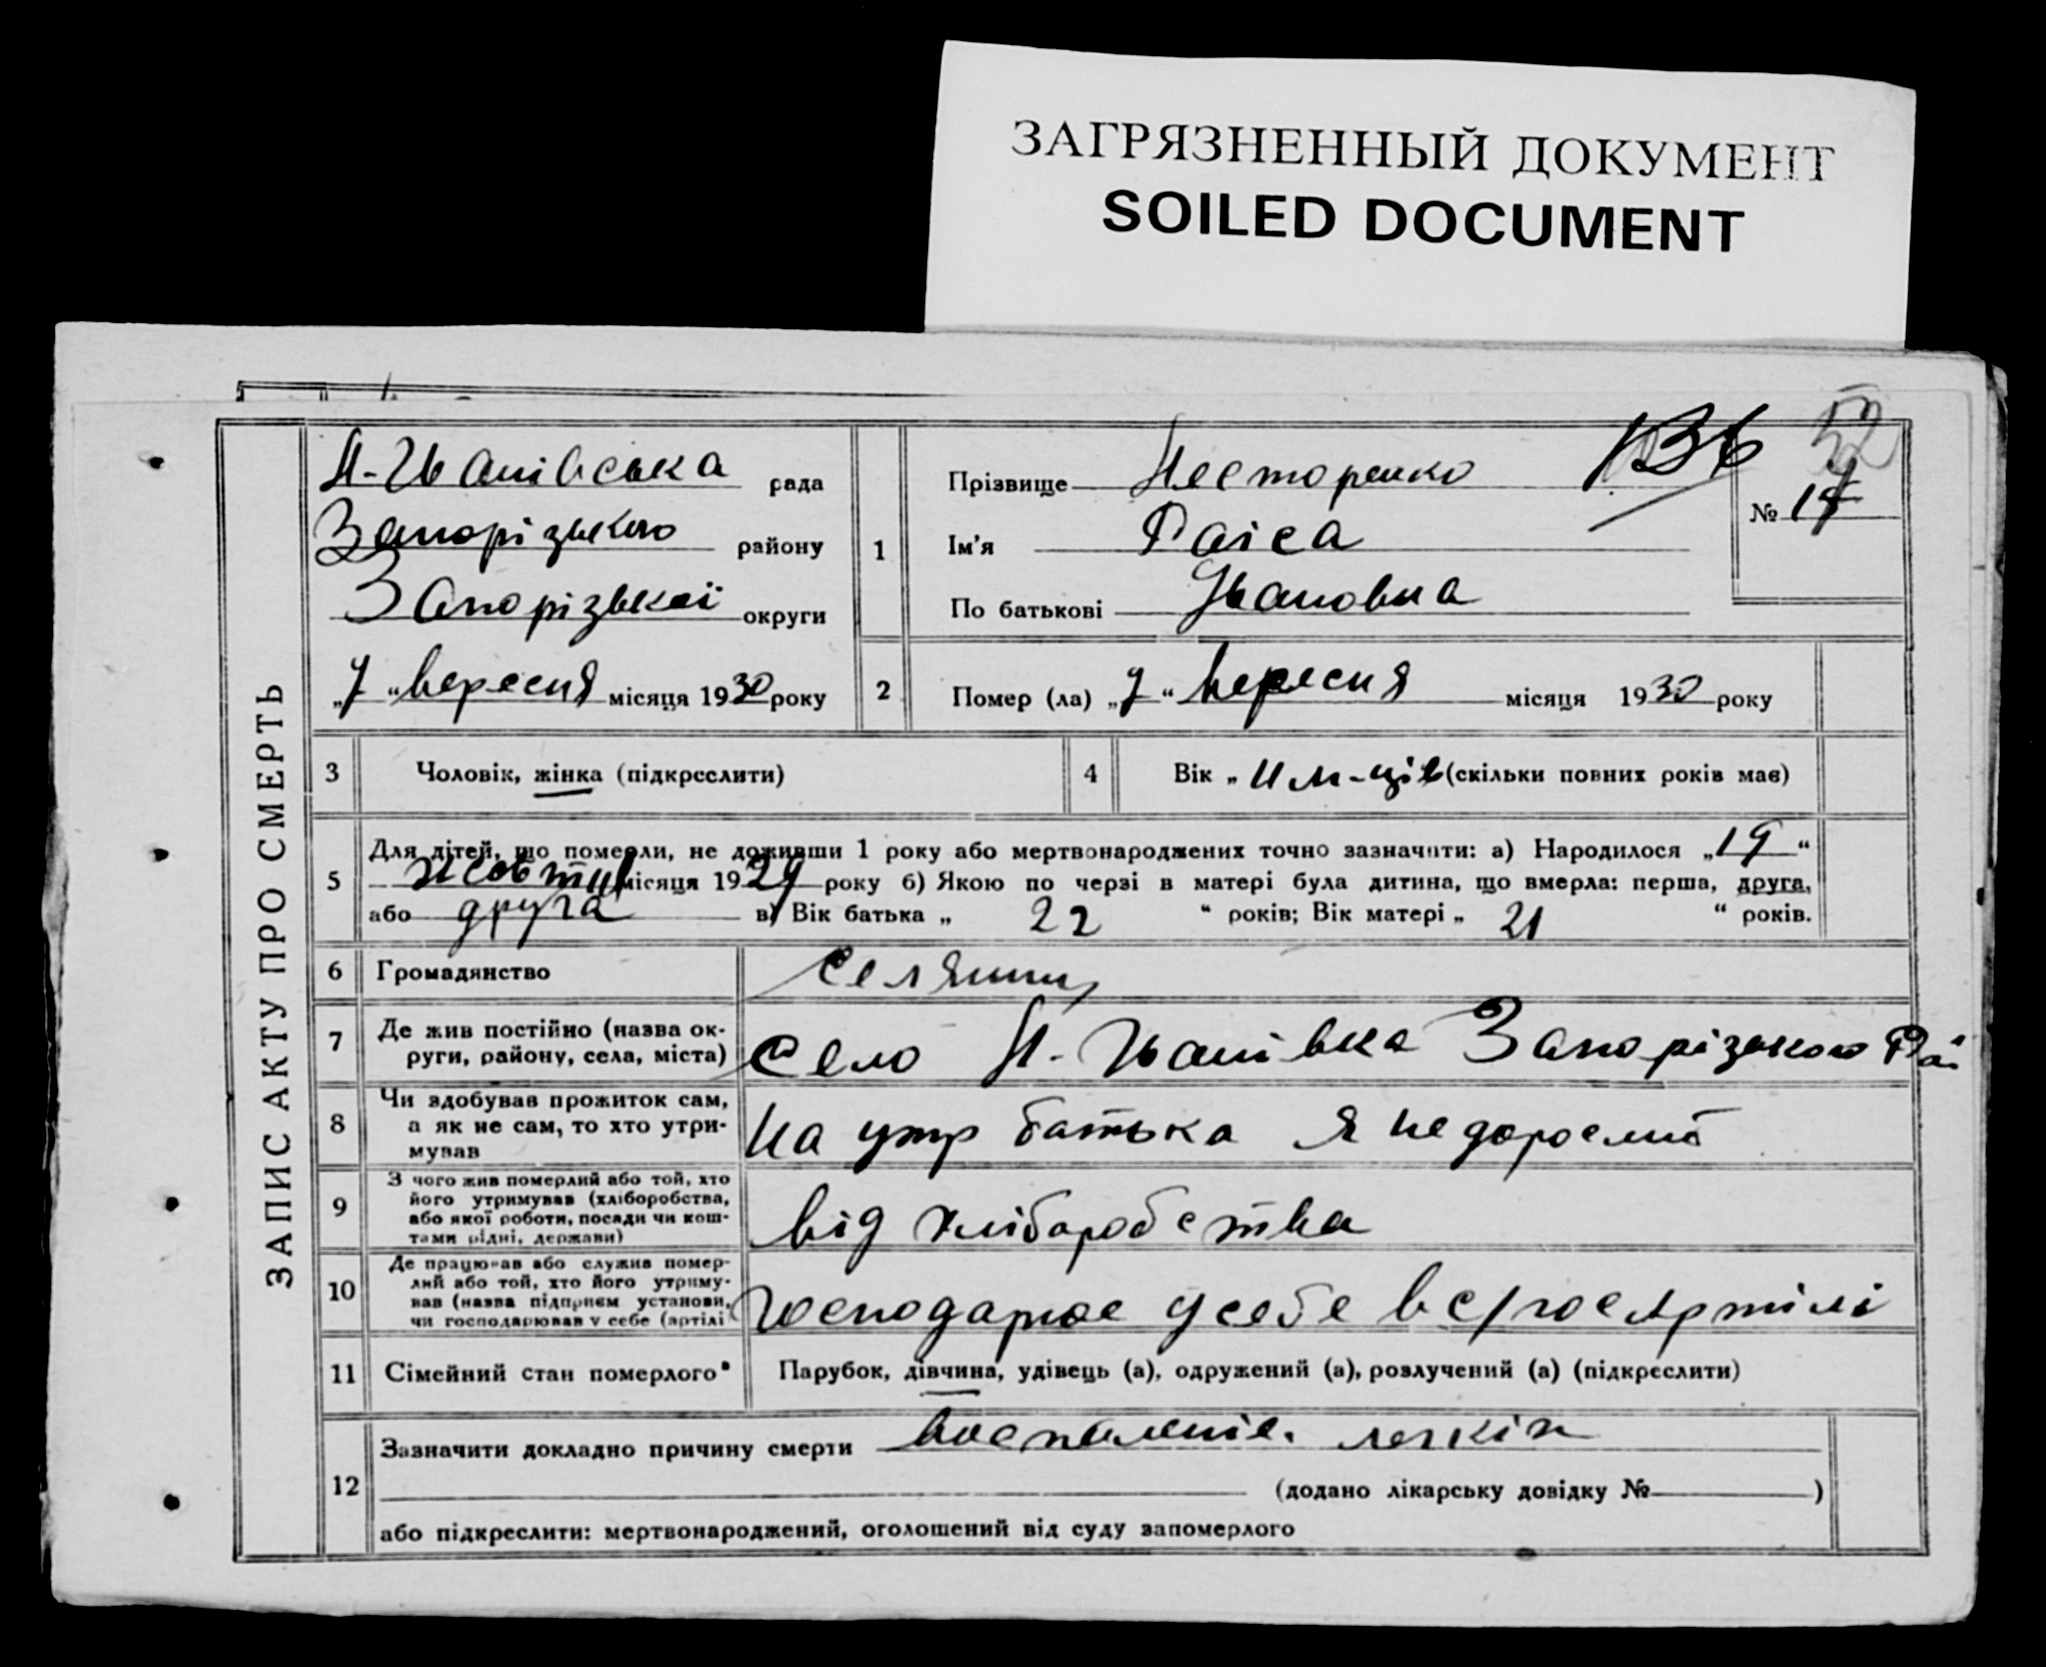 ЗАГРЯЗНЕННЫЙ ДОКУМЕНТ
SOILED DOCUMENT
ЗАПИС АКТУ ПРО СМЕРТЬ
Н-Іванівська рада
Запорізького району
Запорізької округи
„7“ вересня місяця 1930 року
1
Прізвище Несторенко
136
52
Ім'я Раїса
№ 17
По батькові Івановна
2
Помер (ла) „7“ вересня місяця 1930 року
3
Чоловік, жінка (підкреслити)
4
Вік „ 11 м-ців (скільки повних років має)
5
Для дітей, що померли, не доживши 1 року або мертвонароджених точно зазначити: а) Народилося „19“
місяця 1929 року б) Якою по черзі в матері була дитина, що вмерла: перша, друга,
або друга в) Вік батька „ 22 “ років; Вік матері „ 21 “ років.
6
Громадянство
7
Де жив постійно (назва ок-
руги, району, села, міста)
село Н-Іванівка Запорізького Рай
8
Чи здобував прожиток сам,
а як не сам, то хто утри-
мував
на утр батька я недорослий
9
З чого жив померлий або той, хто
його утримував (хліборобства,
або якої роботи, посади чи кош-
тами рідні, держави)
від хліборобства
10
Де працював або служив помер-
лий або той, хто його утриму-
вав (назва підприєм установи,
чи господарював у себе (артілі
господарює у себе в с/госпартілі
11
Сімейний стан померлого
Парубок, дівчина, удівець (а), одружений (а), розлучений (а) (підкреслити)
12
Зазначити докладно причину смерти воспаленіе легкіх
(додано лікарську довідку № )
або підкреслити: мертвонароджений, оголошений від суду запомерлого